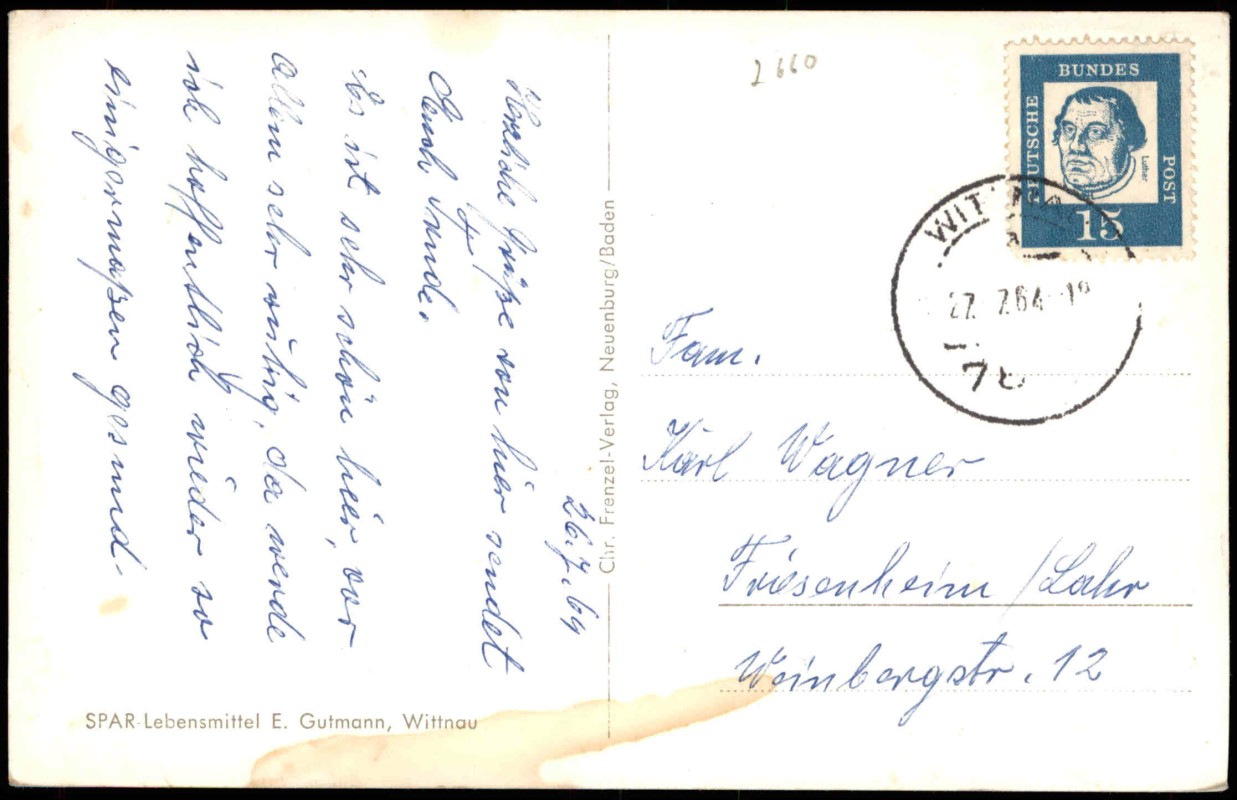 26.7.64
Herzliche Grüße von hier sendet
Euch
Es ist sehr schön hier, vor
allem sehr ruhig, da werde
ich hoffentlich wieder so
einigermaßen gesund.
SPAR-Lebensmittel E. Gutmann, Wittnau
Chr. Frenzel-Verlag, Neuenburg/Baden
2660
DEUTSCHE
BUNDES
POST
Luther
15
27. 7.64
78
Fam.
Karl Wagner
Friesenheim/Lahr
Weinbergstr. 12